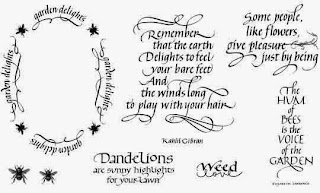 garden delights
garden delights
garden delights
garden delights
Remember
that the earth
Delights to feel
your bare feet
And
the winds long
to play with your hair
Kahlil Gibran
Some people,
like flowers,
give pleasure
just by being
The
HUM
of
BEES
is the
VOICE
of the
GARDEN
Dandelions
are sunny highlights
for your lawn
Weed